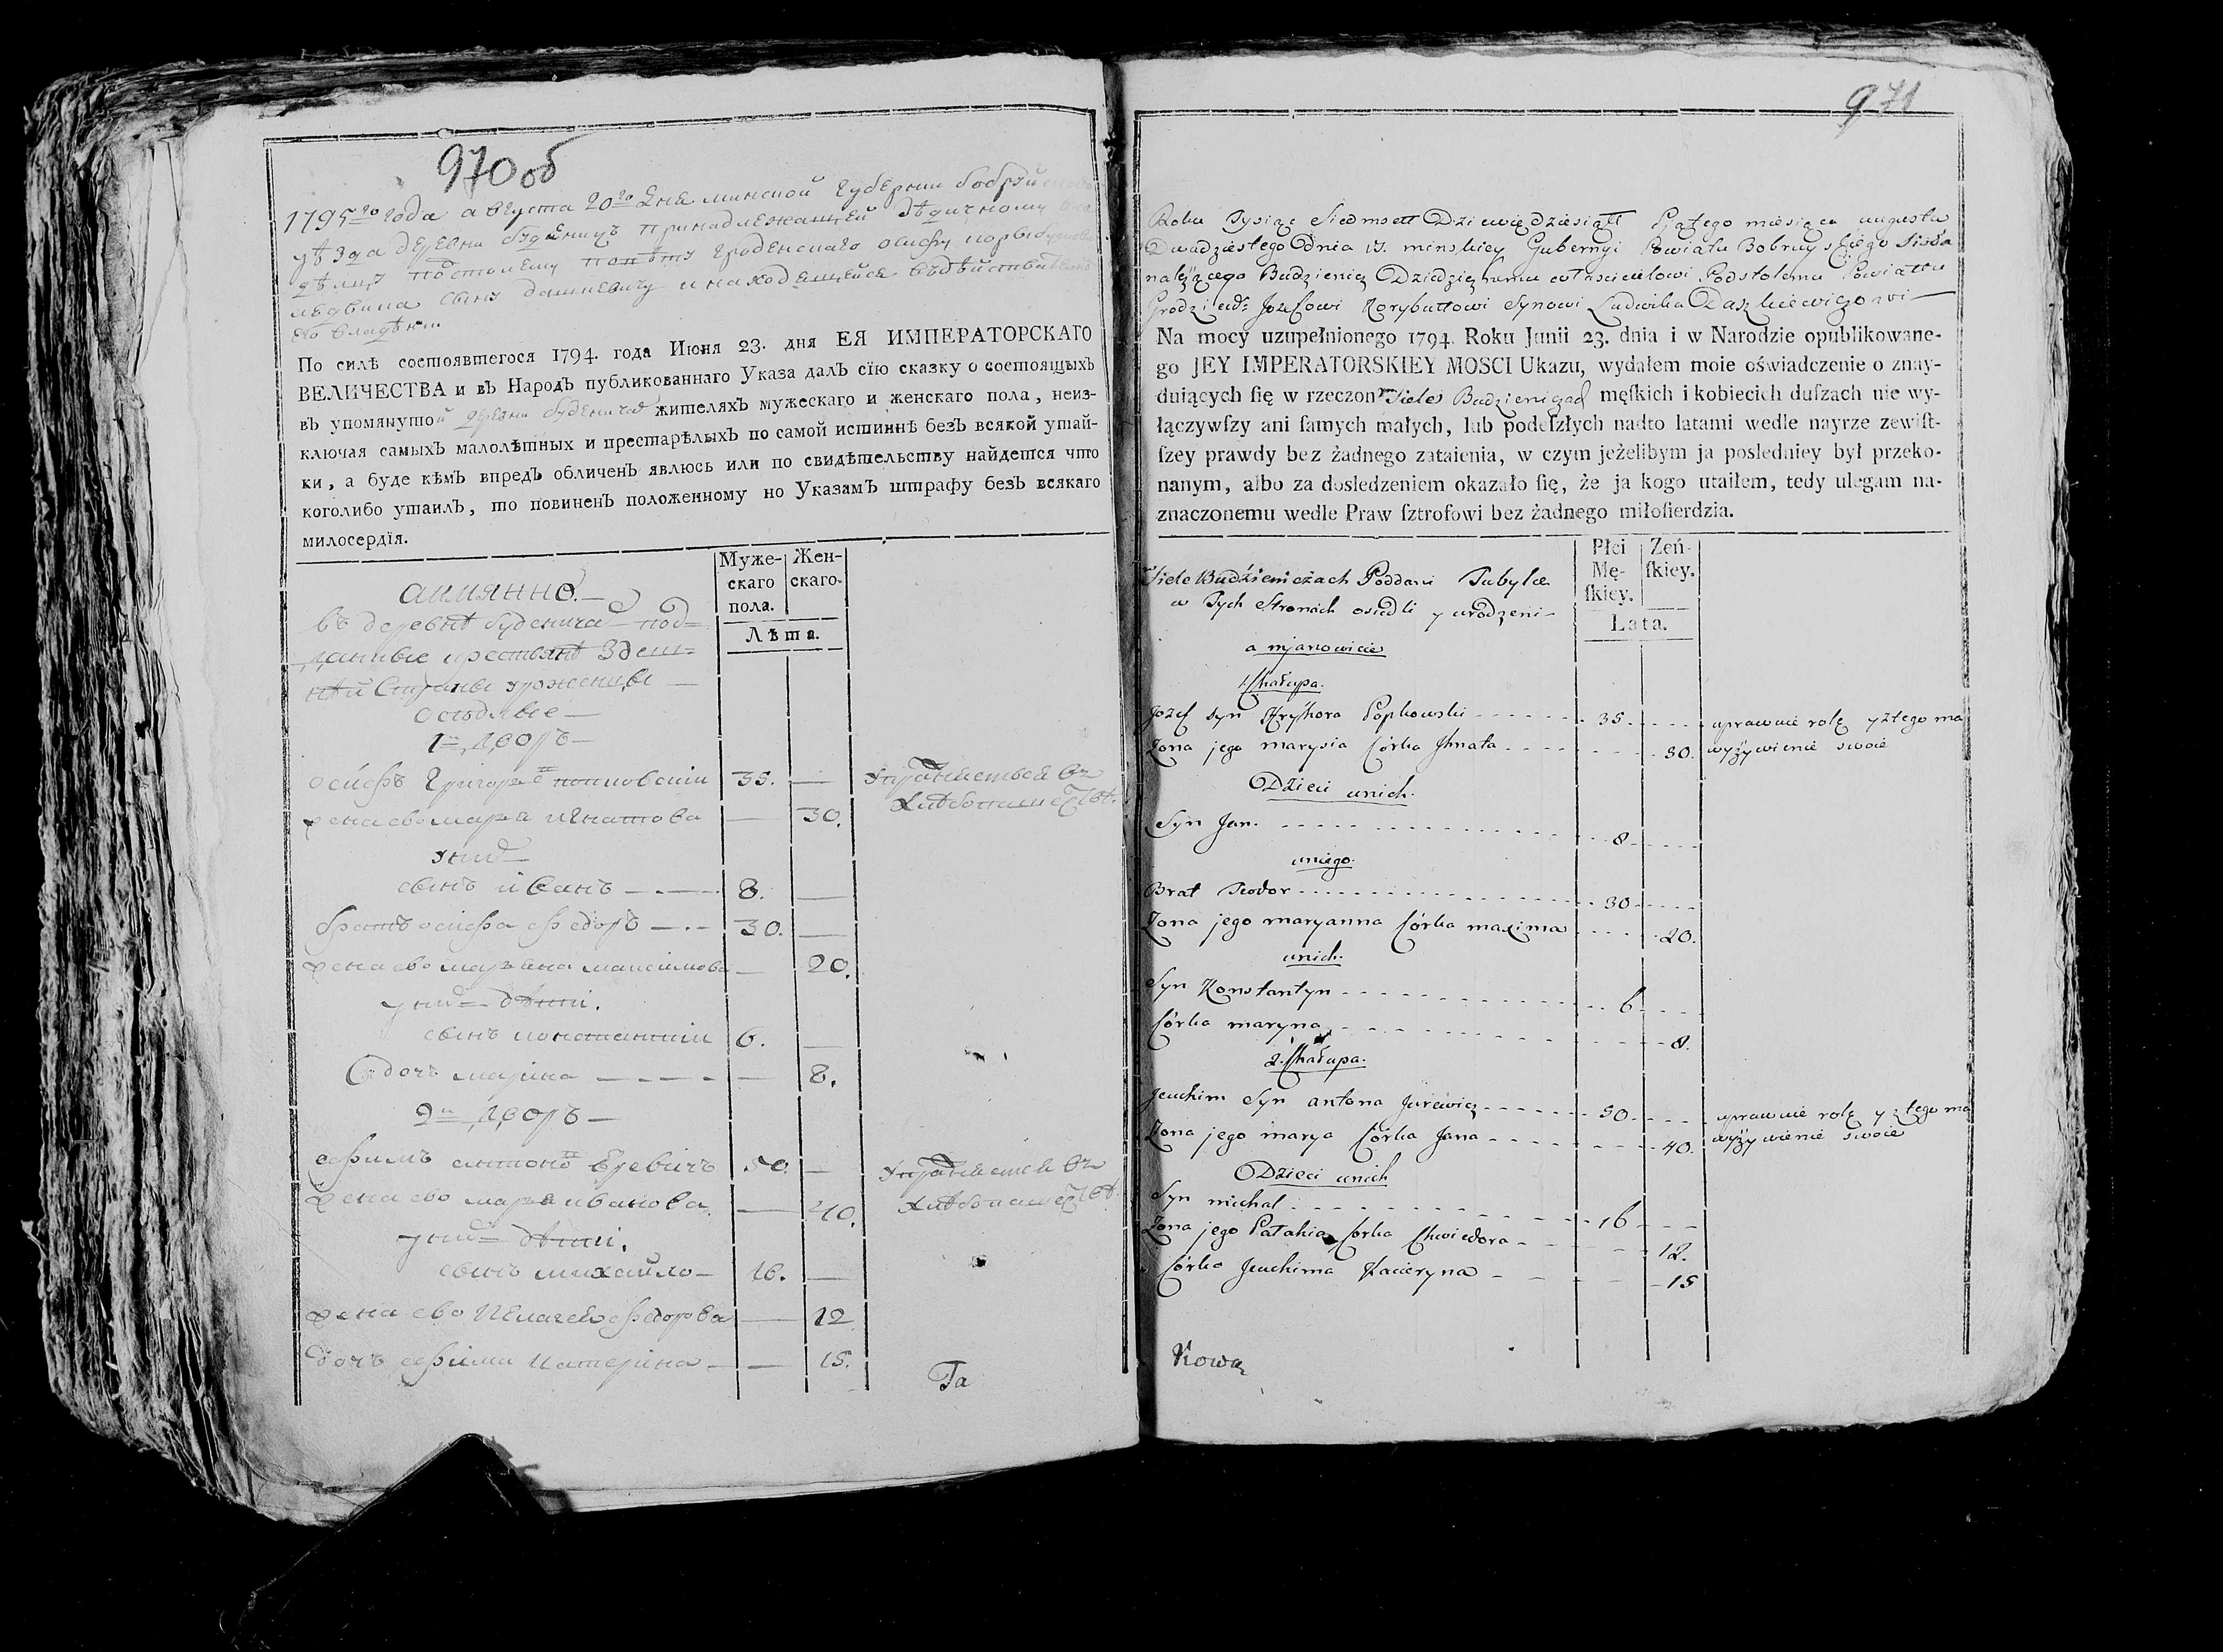 970 об
1795го года августа 20го дня минской губернии бобруйскаго
уѣзда деревни буденичъ принадлежащей дѣдичному
подстолему повѣту гроденскаго осифу корыбутови
людвика сыну дашкевичу и находящейся въ дѣйствительно
во владѣнии
По силѣ состоявшегося 1794. года Июня 23. дня ЕЯ ИМПЕРАТОРСКАГО
ВЕЛИЧЕСТВА и въ Народъ публикованнаго Указа далъ сїю сказку о состоящыхъ
въ упомянутой деревни буденичах жителяхъ мужескаго и женскаго пола, неиз-
ключая самыхъ малолѣтных и престарѣлыхъ по самой истиннѣ безъ всякой утай-
ки, а буде кѣмъ впредъ обличенъ явлюсь или по свидѣтельству найдется что
коголибо утаилъ, то повиненъ положенному по Указамъ штрафу безъ всякаго
милосердїя.
Муже- Жен-
скаго скаго.
пола.
Лѣта.
аимянно.
въ деревнѣ буденичах под-
данные крестьянѣ здеш-
нѣй стороны уроженцы
оседлые
1й дворъ
осифъ григорев попковский 35. — упражняется въ
жена ево маря игнатова — 30. хлебопашествѣ.
у них
сынъ иванъ 8. —
братъ осифа федоръ 30. —
жена ево марьяна максимова — 20.
у них дѣти.
сынъ константин 6. —
дочъ марина — 8.
2й дворъ
ефимъ антонов юревичъ 50. — упражняется въ
жена ево маря иванова — 40. хлебопашествѣ.
у них дѣти.
сынъ михайло 16. —
жена ево пелагея федорова — 12
дочъ ефима катерина — 15.
Та
971
Roku Tysiąc Siedmsett Dziewiędziesiątt Piątego miesiąca augusta
Dwadziestego Dnia w minskiey Gubernyi Powiatu Bobruyskiego Sioła
należącego Budzienicz Dziedzicznemu własciwielowi Podstolemu Powiattu
Grodzieńs: Jozefowi Korybuttowi Synowi Ludwika Daszkiewiczowi
Na mocy uzupełnionego 1794. Roku Junii 23. dnia i w Narodzie opublikowane-
go JEY IMPERATORSKIEY MOSCI Ukazu, wydałem moie oświadczenie o znay-
duiących ſię w rzeczonm Siele Budzieniczach męſkich i kobiecich duſzach nie wy-
łączywſzy ani ſamych małych, lub podeſzłych nadto latami wedle nayrze zewiſt-
ſzey prawdy bez żadnego zataienia, w czym jeżelibym ja posledniey był przeko-
nanym, albo za dosledzeniem okazało ſię, że ja kogo utaiłem, tedy ulegam na-
znaczonemu wedle Praw ſztrofowi bez żadnego miłoſierdzia.
Płci Zeń-
Mę- ſkiey.
ſkiey.
Lata.
w Siele Budźieniczach Poddani Tubylce
w Tych Stronach osiedli y urodzeni
a mjanowicie
1. Chałupa.
Jozef syn Hryhora Popkowski 35. uprawuie rolę y ztego ma
Zona jego marysia Córka Jhnata 30. wyżywienie swoie
Dzieci unich.
Syn Jan. 8
uniego.
Brat Teodor 30
Zona jego maryanna Córka maxima 20.
unich.
Syn Konstantyn 6
Córka maryna 8.
2. Chałupa.
Jeuchim Syn antona Jurewicz 50 uprawuie rolę y ztego ma
Zona jego marya Córka Jana 40. wyżywienie swoie
Dzieci unich
Syn michal 16
Zona jego Patahia Corka Chwiedora 12.
Córka Jeuchima Kacieryna 15
Kowa